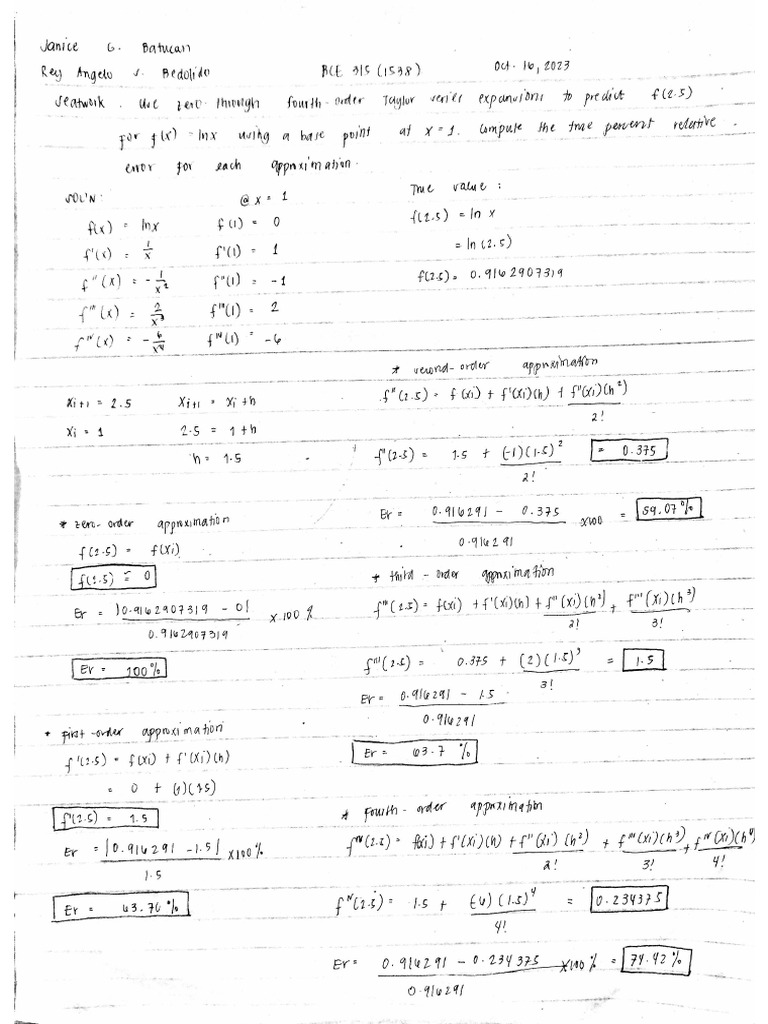 Janice G. Batucan
Rey Angelo S. Bedolido BCE 315 (1538) Oct. 16, 2023
Seatwork. Use zero-through fourth-order Taylor series expansions to predict f(2.5)
for f(x) = lnx using a base point at x = 1. Compute the true percent relative
error for each approximation.
SOL'N: @ x = 1
f(x) = lnx f(1) = 0
f'(x) = 1/x f'(1) = 1
f''(x) = -1/x² f''(1) = -1
f'''(x) = 2/x³ f'''(1) = 2
f^IV(x) = -6/x⁴ f^IV(1) = -6
True value:
f(2.5) = ln x
= ln (2.5)
f(2.5) = 0.9162907319
xi+1 = 2.5 xi+1 = xi + h
xi = 1 2.5 = 1 + h
h = 1.5
* zero-order approximation
f(2.5) = f(xi)
f(2.5) = 0
Er = |0.9162907319 - 0| / 0.9162907319 x 100 %
Er = 100%
* First-order approximation
f'(2.5) = f(xi) + f'(xi)(h)
= 0 + (1)(1.5)
f'(2.5) = 1.5
Er = |0.916291 - 1.5| / 1.5 x100%
Er = 63.70 %
* second-order approximation
f''(2.5) = f(xi) + f'(xi)(h) + f''(xi)(h²) / 2!
f''(2.5) = 1.5 + (-1)(1.5)² / 2! = 0.375
Er = 0.916291 - 0.375 / 0.916291 x100 = 59.07%
* third-order approximation
f'''(2.5) = f(xi) + f'(xi)(h) + f''(xi)(h²) / 2! + f'''(xi)(h³) / 3!
f'''(2.5) = 0.375 + (2)(1.5)³ / 3! = 1.5
Er = 0.916291 - 1.5 / 0.916291
Er = 63.7 %
* Fourth-order approximation
f^IV(2.5) = f(xi) + f'(xi)(h) + f''(xi)(h²) / 2! + f'''(xi)(h³) / 3! + f^IV(xi)(h⁴) / 4!
f^IV(2.5) = 1.5 + (-6)(1.5)⁴ / 4! = 0.234375
Er = 0.916291 - 0.234375 / 0.916291 x100 % = 74.42 %